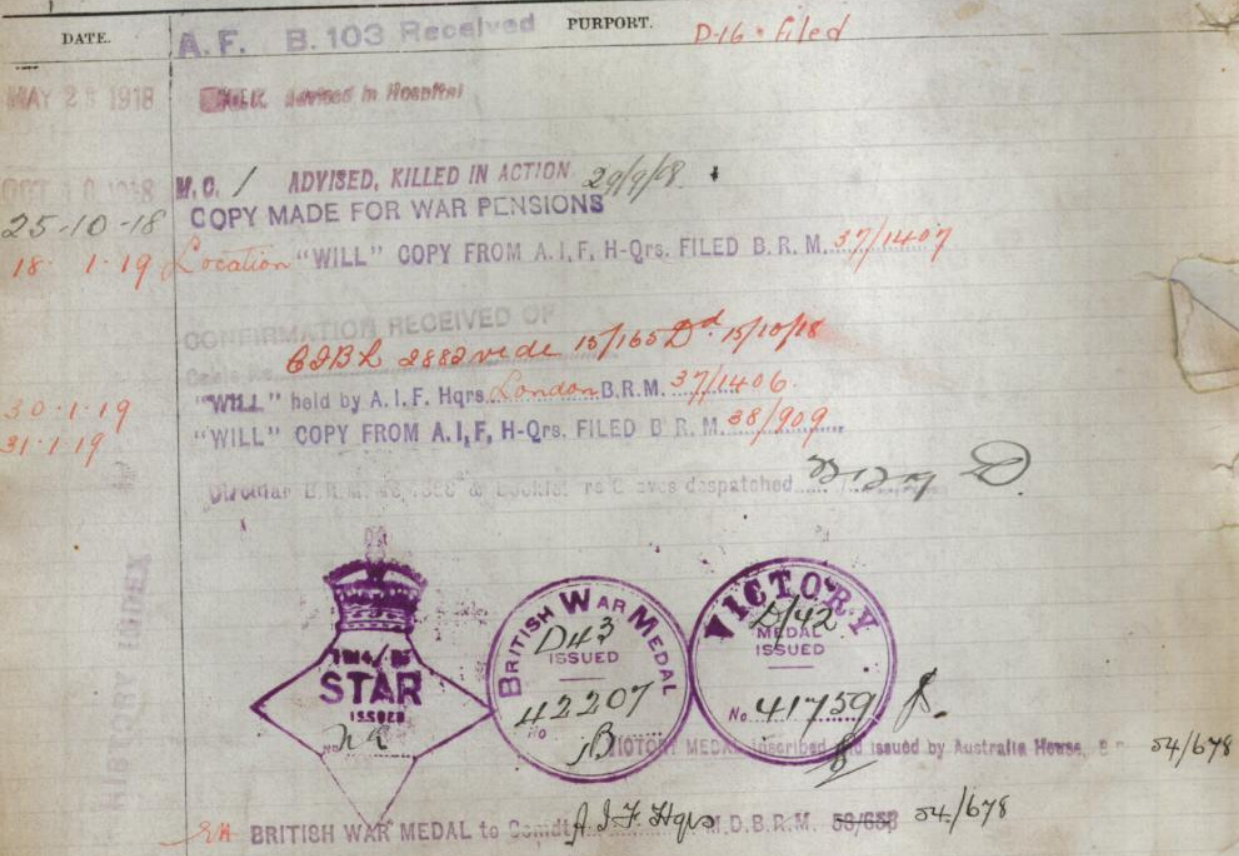 DATE. PURPORT.
A.F. B.103 Received D-16 · filed
MAY 2 1918 advised in Hospital
OCT 1918 M.C. / ADVISED, KILLED IN ACTION 29/9/18.
25-10-18 COPY MADE FOR WAR PENSIONS
18. 1.19 Location "WILL" COPY FROM A.I.F. H-Qrs. FILED B.R.M. 37/1407
CONFIRMATION RECEIVED OF
Cable No. 2882 vide 15/165 Dd. 15/10/18
30.1.19 "WILL" held by A.I.F. Hqrs. London B.R.M. 37/1406.
31.1.19 "WILL" COPY FROM A.I.F. H-Qrs. FILED B.R.M. 38/909
Circular B.R.M. & Booklet re Graves despatched
HISTORY INDEX
1914/15
STAR
ISSUED
No
BRITISH WAR MEDAL
D43
ISSUED
42207
No
VICTORY
D/42
MEDAL
ISSUED
No 41759
VICTORY MEDAL inscribed and issued by Australia House, 54/678
BRITISH WAR MEDAL to Comdt A.I.F. Hqrs M.D.B.R.M. 54/678